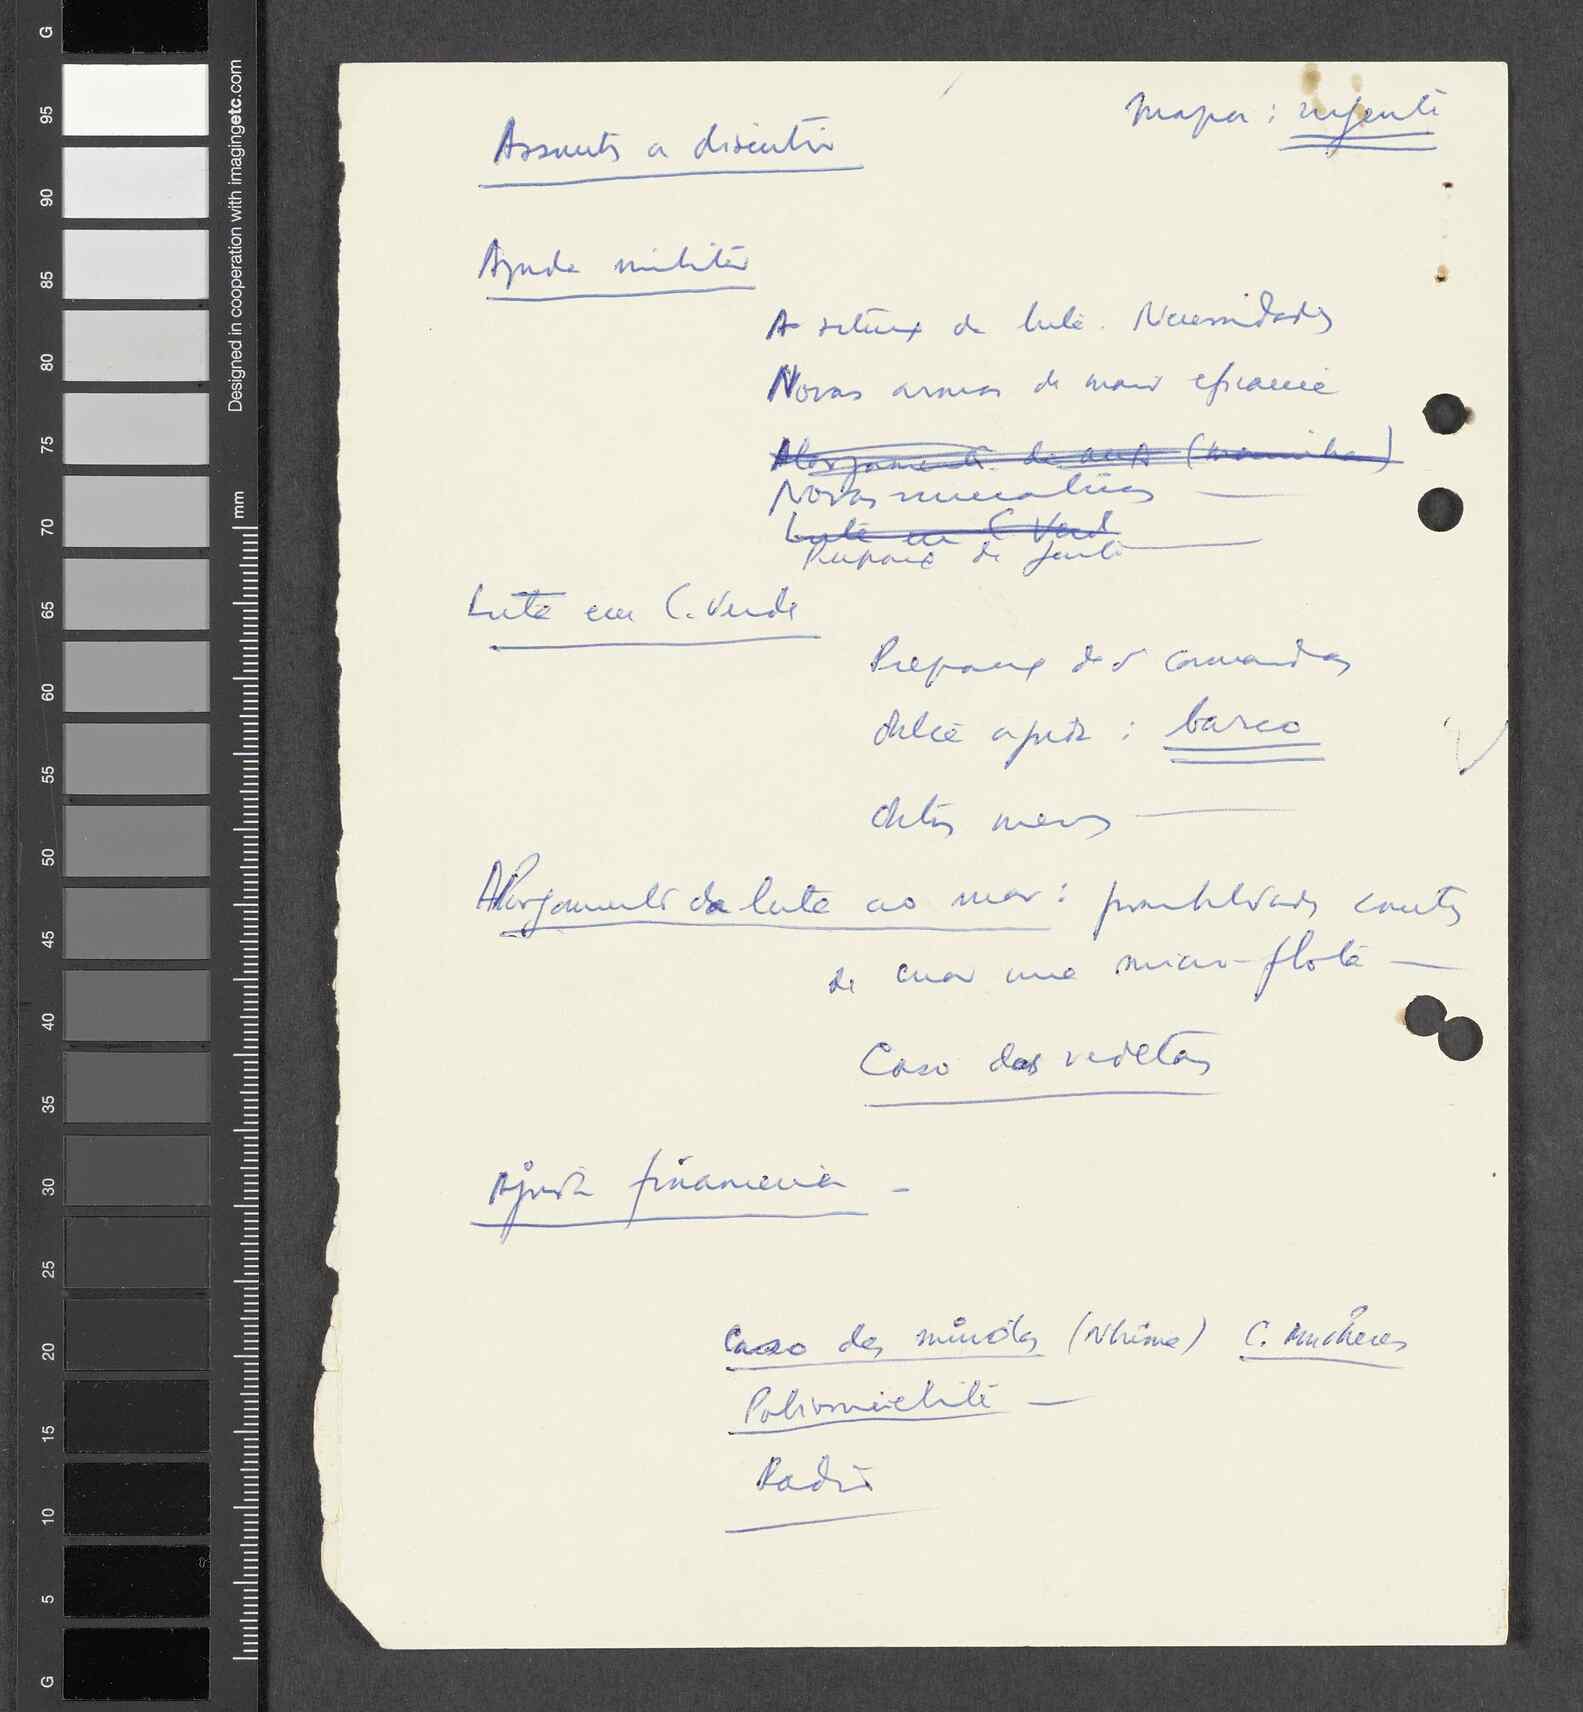 Mapa: urgente
Assuntos a discutir
Ajuda militar
A situação da luta. Necessidades
Novas armas de maior eficácia
Alargamento da luta (marinha)
Novas iniciativas
Luta em C. Verde
Preparação de gente
Luta em C. Verde
Preparação dos comandos
ajuda: barco
Outros meios
Alargamento da luta ao mar: possibilidades
de criar uma micro-flota
Caso das vedetas
Ajuda financeira -
Caso das (Nhima) C. Mulheres
Poliomielite
Rádio
G
95
90
85
80
75
70
65
60
55
50
45
40
35
30
25
20
15
10
5
G
Designed in cooperation with imagingetc.com
mm